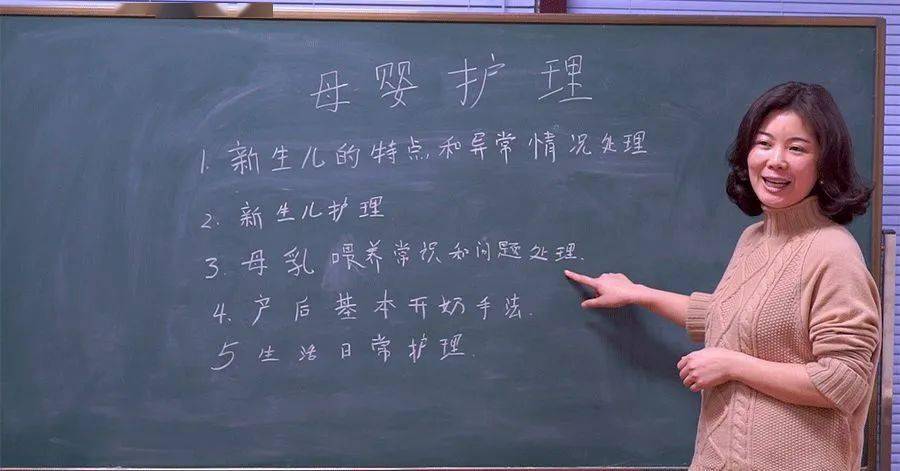 母婴护理
1. 新生儿的特点和异常情况处理
2. 新生儿护理
3. 母乳喂养常识和问题处理.
4. 产后基本开奶手法.
5 生活日常护理.